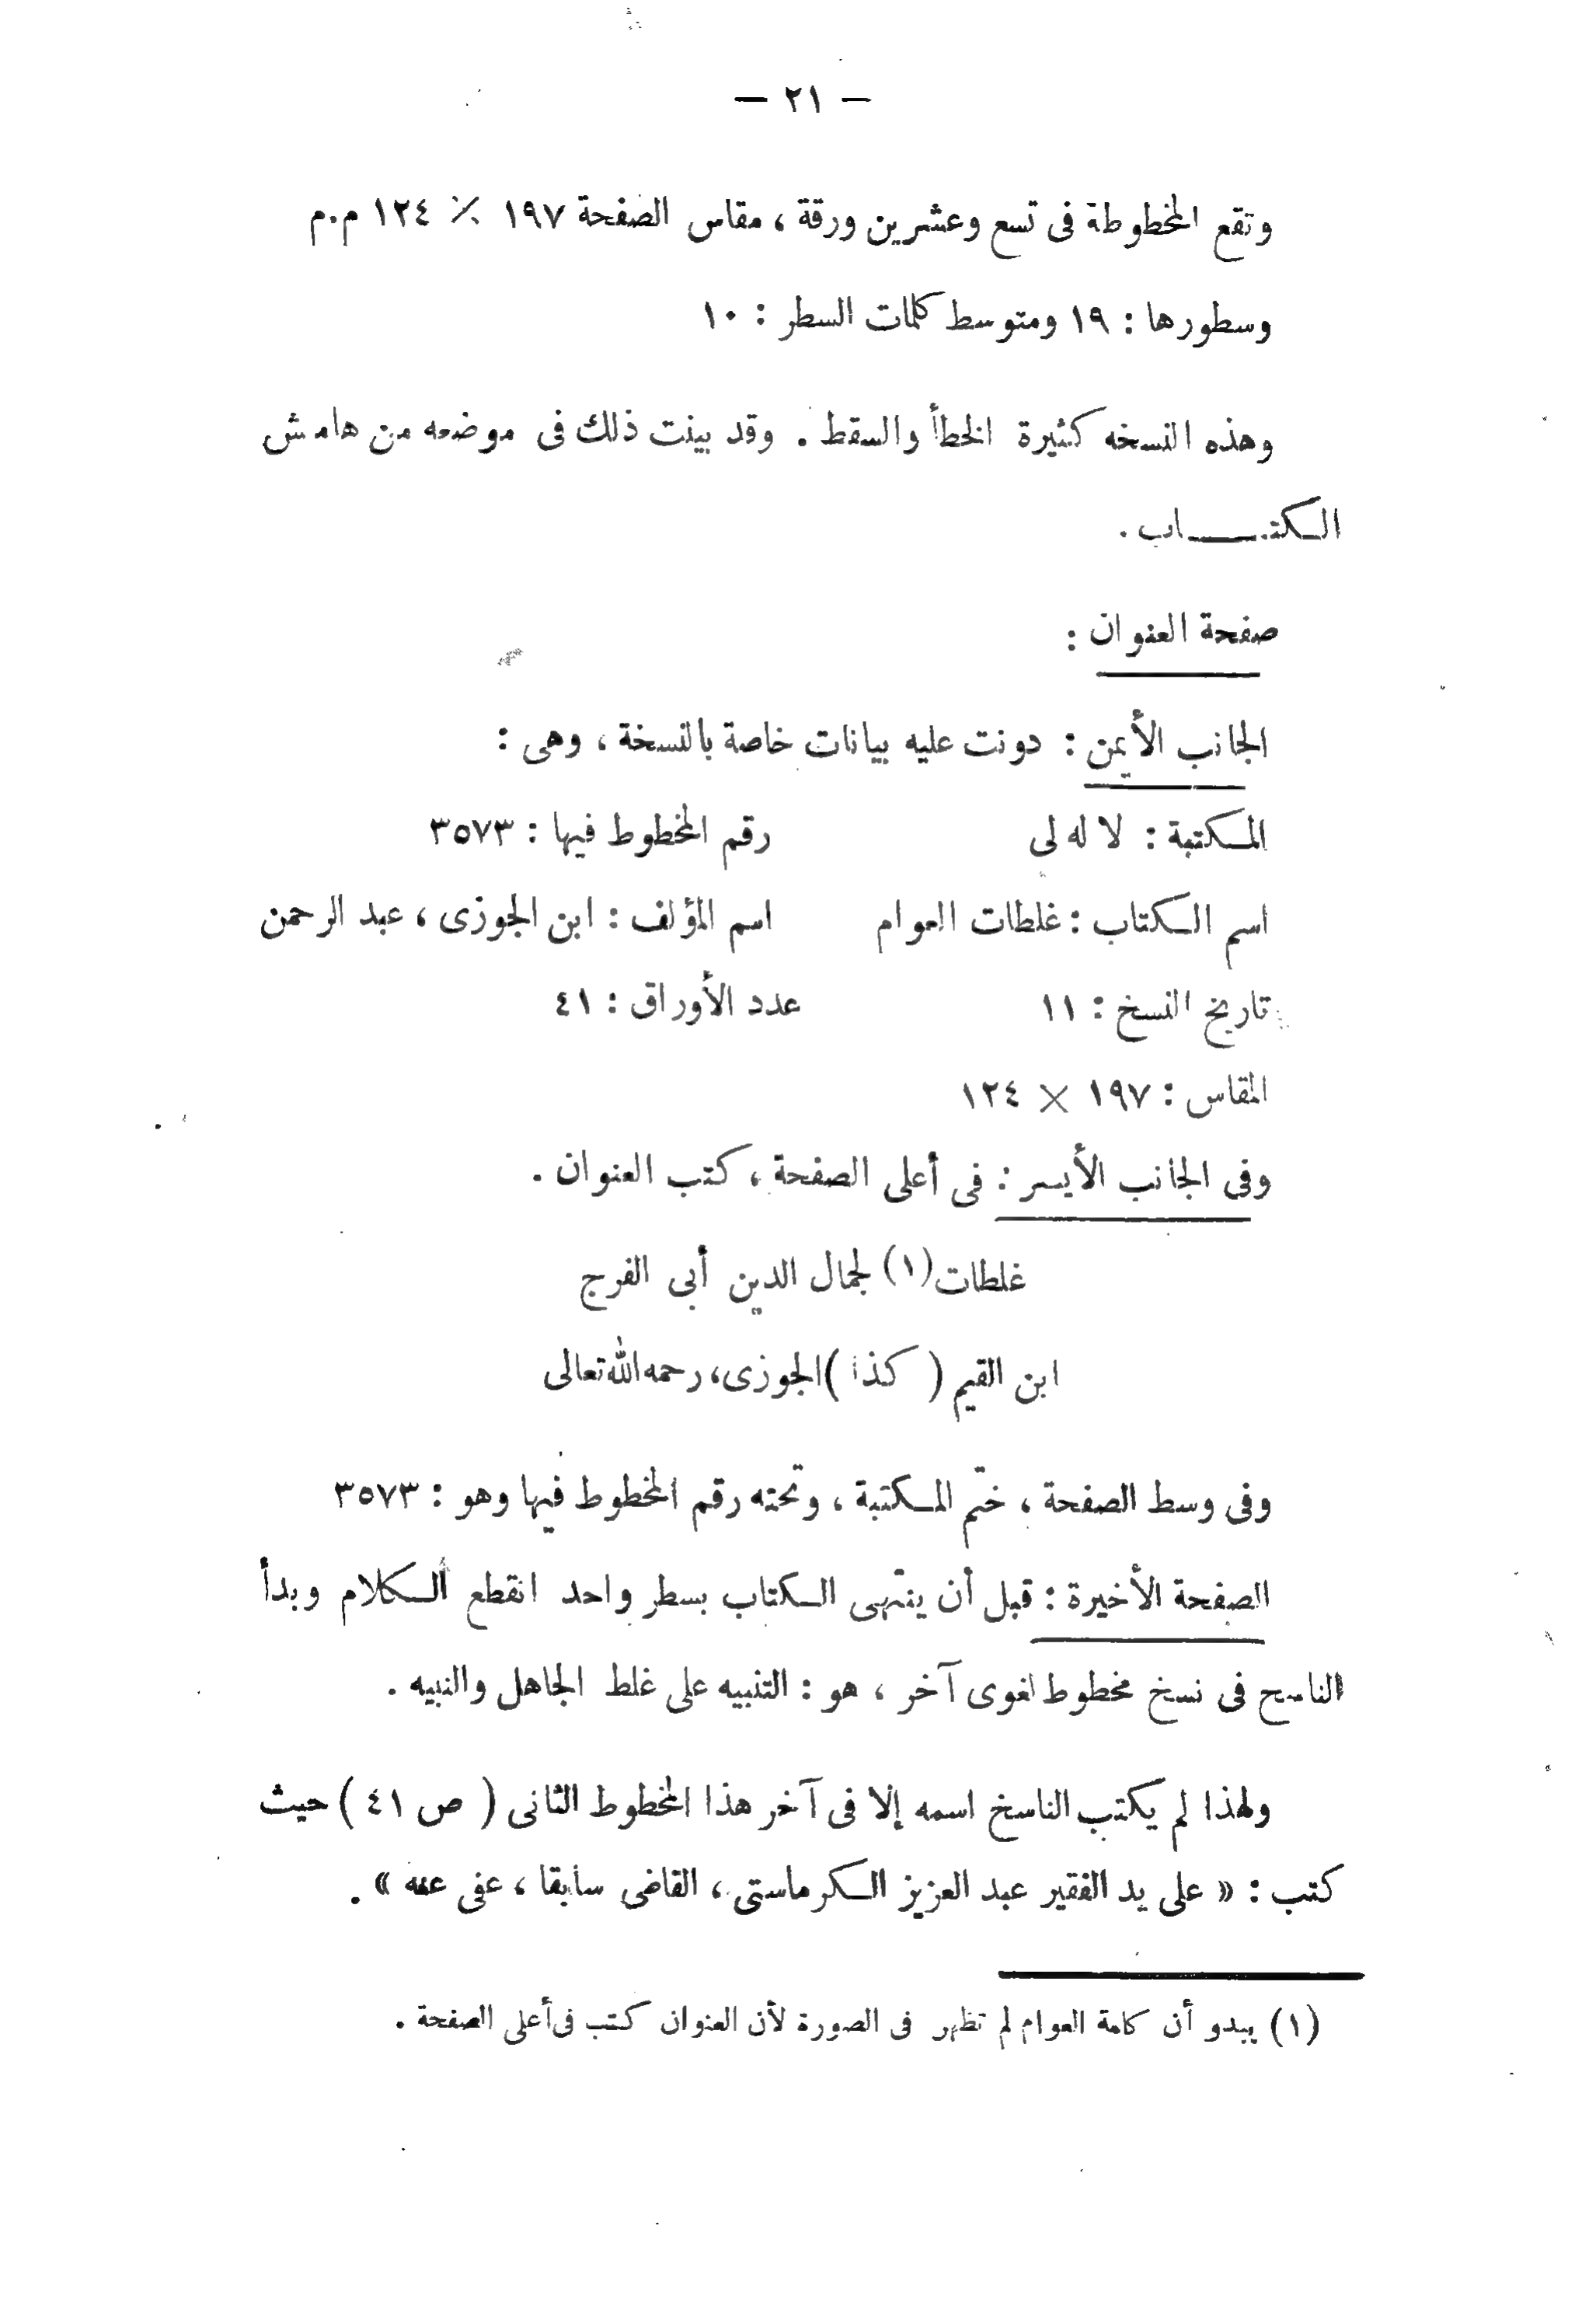 — ٢١ —
وتقع المخطوطة فى تسع وعشرين ورقة ، مقاس الصفحة ١٩٧ ٪ ١٢٤ م.م
وسطورها : ١٩ ومتوسط كلمات السطر : ١٠
وهذه النسخه كثيرة الخطأ والسقط . وقد بينت ذلك فى موضعه من هامش
الكتـــاب .
صفحة العنوان :
الجانب الأيمن : دونت عليه بيانات خاصة بالنسخة ، وهى :
المكتبة : لا له لى رقم المخطوط فيها : ٣٥٧٣
اسم الكتاب : غلطات العوام اسم المؤلف : ابن الجوزى ، عبد الرحمن
تاريخ النسخ : ١١ عدد الأوراق : ٤١
المقاس : ١٩٧ × ١٢٤
وفى الجانب الأيسر : فى أعلى الصفحة ، كتب العنوان .
غلطات (١) لجمال الدين أبى الفرج
ابن القيم ( كذا ) الجوزى ، رحمه الله تعالى
وفى وسط الصفحة ، ختم المكتبة ، وتحته رقم المخطوط فيها وهو : ٣٥٧٣
الصفحة الأخيرة : قبل أن ينتهى الكتاب بسطر واحد انقطع الكلام وبدأ
الناسخ فى نسخ مخطوط لغوى آخر ، هو : التنبيه على غلط الجاهل والنبيه .
ولهذا لم يكتب الناسخ اسمه إلا فى آخر هذا المخطوط الثانى ( ص ٤١ ) حيث
كتب : « على يد الفقير عبد العزيز الكرماستى ، القاضى سابقا ، عفى عنه » .
(١) يبدو أن كلمة العوام لم تظهر فى الصورة لأن العنوان كتب فى أعلى الصفحة .